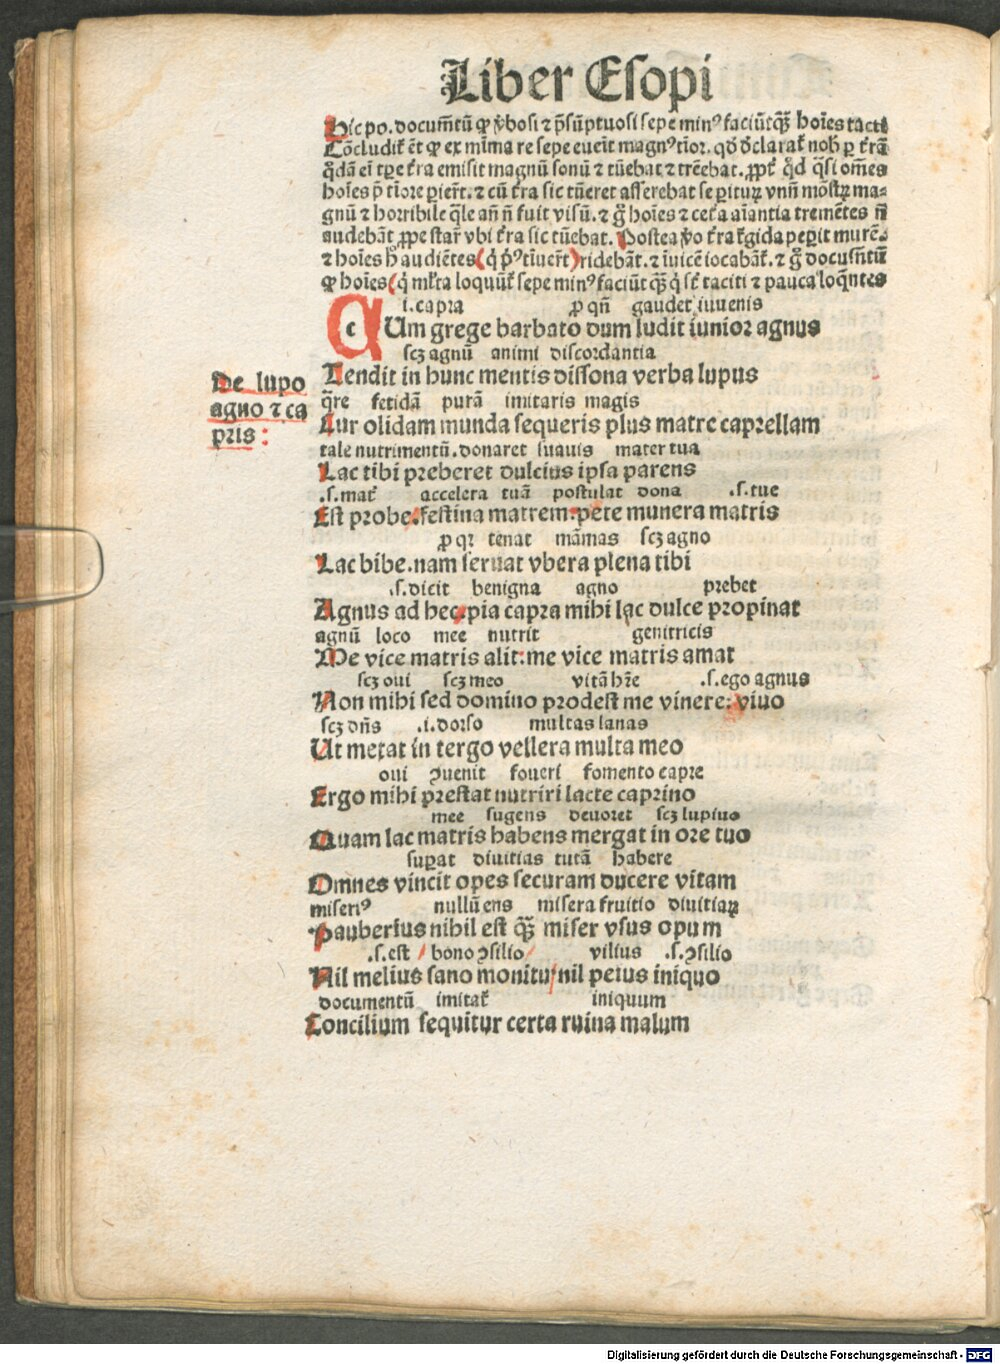 Liber Esopi
Hic po. documētū ꝙ v̄bosi ⁊ p̄sūptuosi sepe minꝰ faciūt qꝫ̄ hoīes taciti
Cōcludit̄ ēt ꝙ ex mīma re sepe eueīt magnꝰ tīor. qd̄ dclarat̄ nob̄ ꝑ t̄rā
q̄dā ei tꝑe t̄ra emisit magnū sonū ⁊ tūebat ⁊ trēebat. ꝓpt̄ qd̄ q̄si om̄es
hoīes p̄ tīore ꝑier̄t. ⁊ cū t̄ra sic tūeret asserebat se ꝑituꝝ vnū mōstꝝ ma-
gnū ⁊ horribile q̄le an̄ n̄ fuit visū. ⁊ g̊ hoīes ⁊ cet̄a aīantia tremētes n̄
audebāt ꝓpe star̄ vbi t̄ra sic tūebat. Postea v̄o t̄ra r̄gida peꝑit murē.
⁊ hoīes h̄ audiētes (q̇ p̄ꝰ tīuer̄t) ridebāt. ⁊ īuicē iocabāt̄. ⁊ g̊ docum̄tū
ꝙ hoīes (q̇ ml̄ta loquūt̄ sepe minꝰ faciūt qꝫ̄ q̇ st̄ taciti ⁊ pauca loq̄ntes
i. capra ꝓ qn̄ gaudet iuvenis
CUm grege barbato dum ludit iunior agnus
scꝫ agnū animi discordantia
De lupo
agno ⁊ ca
pris:
Tendit in hunc mentis dissona verba lupus
q̄re fetidā purā imitaris magis
Cur olidam munda sequeris plus matre capellam
tale nutrimentū. donaret suauis mater tua
Lac tibi preberet dulcius ipsa parens
.s. mat̄ accelera tuā postulat dona .s. tue
Est probe. festina matrem: pete munera matris
ꝓ qꝛ tenat māmas scꝫ agno
Lac bibe. nam seruat vbera plena tibi
.s. dicit benigna agno prebet
Agnus ad hec. pia capra mihi lac dulce propinat
agnū loco mee nutrit genitricis
Me vice matris alit: me vice matris amat
scꝫ oui scꝫ meo vitā hr̄e .s. ego agnus
Non mihi sed domino prodest me vinere: viuo
scꝫ dn̄s .i. dorso multas lanas
Ut metat in tergo vellera multa meo
oui ꝯuenit foueri fomento capre
Ergo mihi prestat nutriri lacte caprino
mee sugens deuoret scꝫ lupius
Quam lac matris habens mergat in ore tuo
suꝑat diuitias tutā habere
Omnes vincit opes securam ducere vitam
miserꝰ nullū ens misera fruitio diuitiaꝝ
Pauberius nihil est qꝫ̄ miser vsus opum
.s. est bono ꝯsilio vilius .s. ꝯsilio
Nil melius sano monitu nil peius iniquo
documentū imitat̄ iniquum
Concilium sequitur certa ruina malum
Digitalisierung gefördert durch die Deutsche Forschungsgemeinschaft - DFG